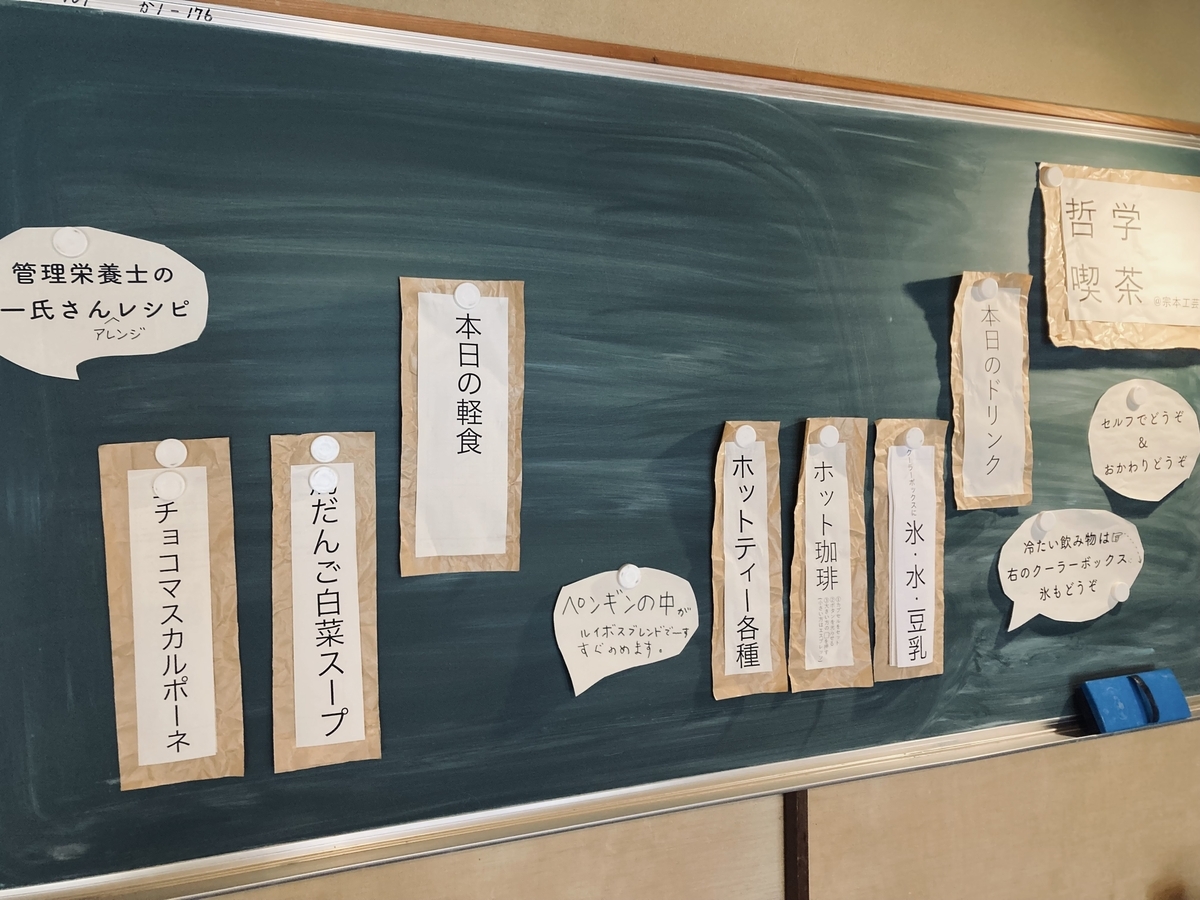 か1-176
哲学
喫茶
@宗本工芸
本日のドリンク
セルフでどうぞ
&
おかわりどうぞ
冷たい飲み物は☞
右のクーラーボックス
氷もどうぞ
クーラーボックスに
氷・水・豆乳
ホット珈琲
ホットティー各種
ペンギンの中が
ルイボスブレンドでーす
すぐのめます。
本日の軽食
だんご白菜スープ
チョコマスカルポーネ
管理栄養士の
一氏さんレシピ
アレンジ